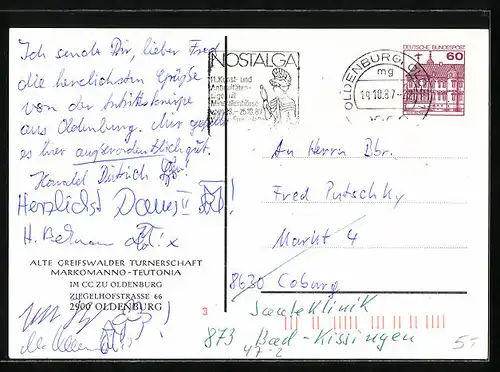 Ich sende Dir, lieber Fred
die herzlichsten Grüße
von der Antrittskneipe
aus Oldenburg. Mir gefällt
es hier außerordentlich gut.
Dietrich
Herzlichst
H.
ALTE GREIFSWALDER TURNERSCHAFT
MARKOMANNO-TEUTONIA
IM CC ZU OLDENBURG
ZIEGELHOFSTRASSE 66
2900 OLDENBURG
NOSTALGA
11. Kunst- und
Antiquitäten-
Mineralienbörse
OLDENBURG, OL
mg
19.10.87
DEUTSCHE BUNDESPOST
60
An Herrn Bbr.
Fred Putschky
Markt 4
8630 Coburg
Saaleklinik
873 Bad-Kissingen
47-2
3
5-